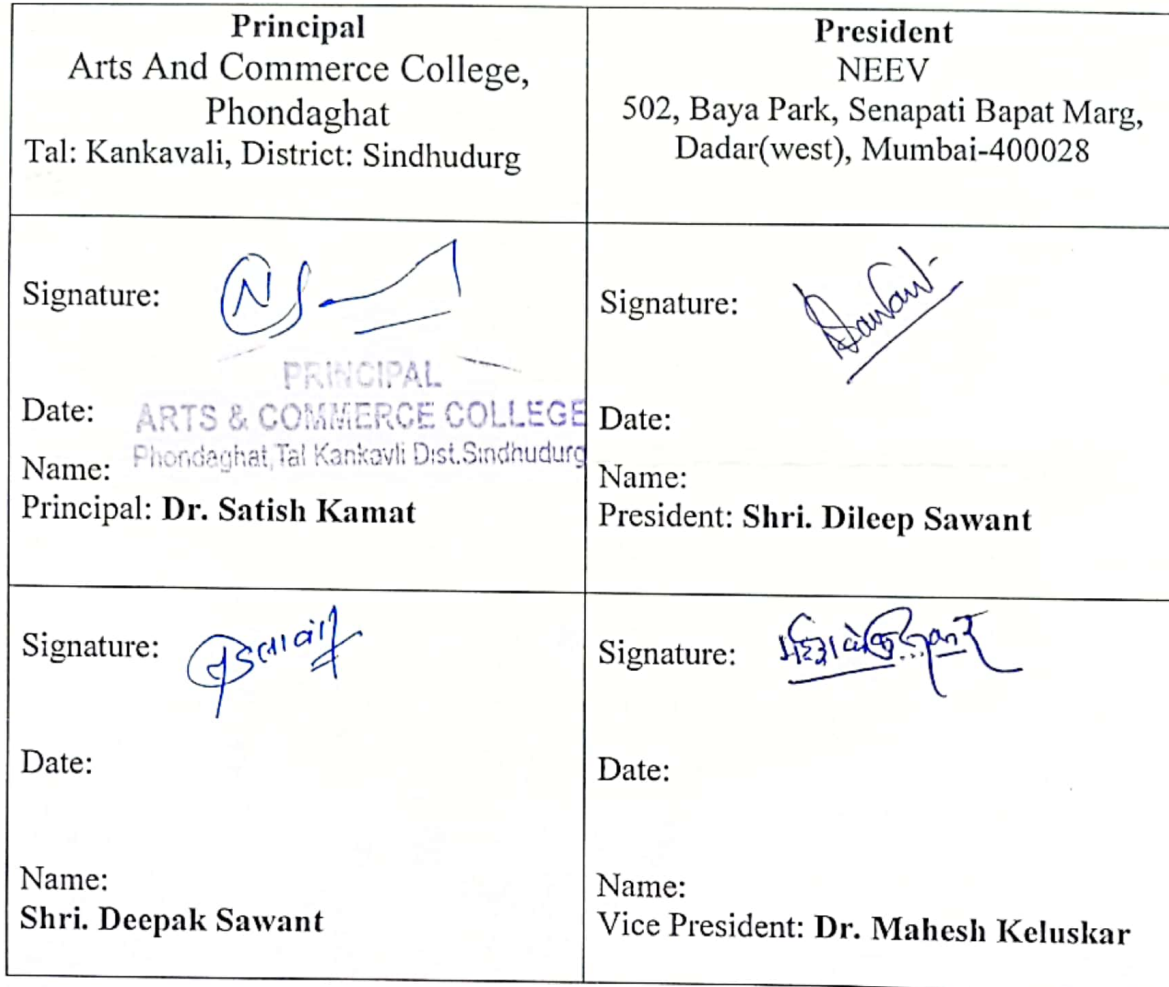 Principal
Arts And Commerce College,
Phondaghat
Tal: Kankavali, District: Sindhudurg
President
NEEV
502, Baya Park, Senapati Bapat Marg,
Dadar(west), Mumbai-400028
Signature:
PRINCIPAL
Date:
ARTS & COMMERCE COLLEGE
Phondaghat,Tal Kankavli Dist.Sindhudurg
Name:
Principal: Dr. Satish Kamat
Signature:
Sawant
Date:
Name:
President: Shri. Dileep Sawant
Signature:
Date:
Name:
Shri. Deepak Sawant
Signature:
Date:
Name:
Vice President: Dr. Mahesh Keluskar